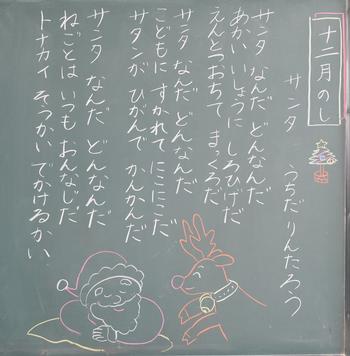 十二月のし
サンタ　うちだりんたろう
サンタ　なんだ　どんなんだ
あかい　いしょうに　しろひげだ
えんとつおちて　まっくろだ
サンタ　なんだ　どんなんだ
こどもに　すかれて　にこにこだ
サタンが　ひがんで　かんかんだ
サンタ　なんだ　どんなんだ
ねごとは　いつも　おんなじだ
トナカイ　そつかい　でかけるかい